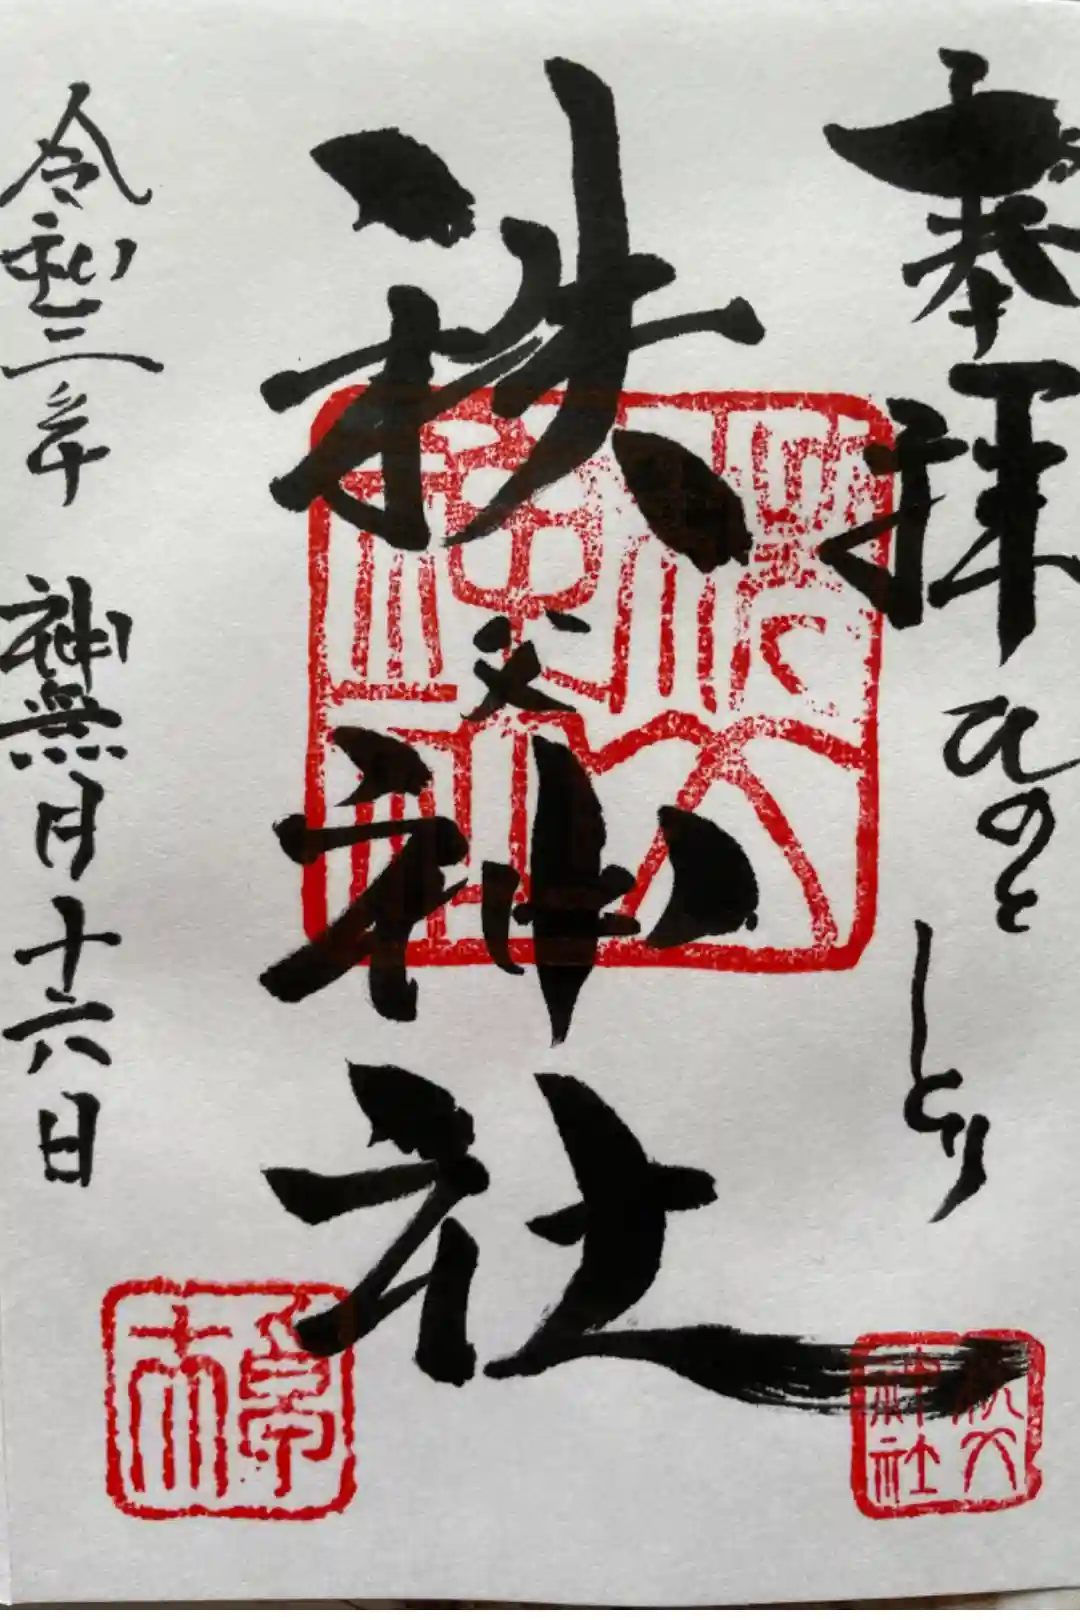 奉拝 ひのととり
秩父神社
令和三年 神無月十六日
秩父神社
秩父神社